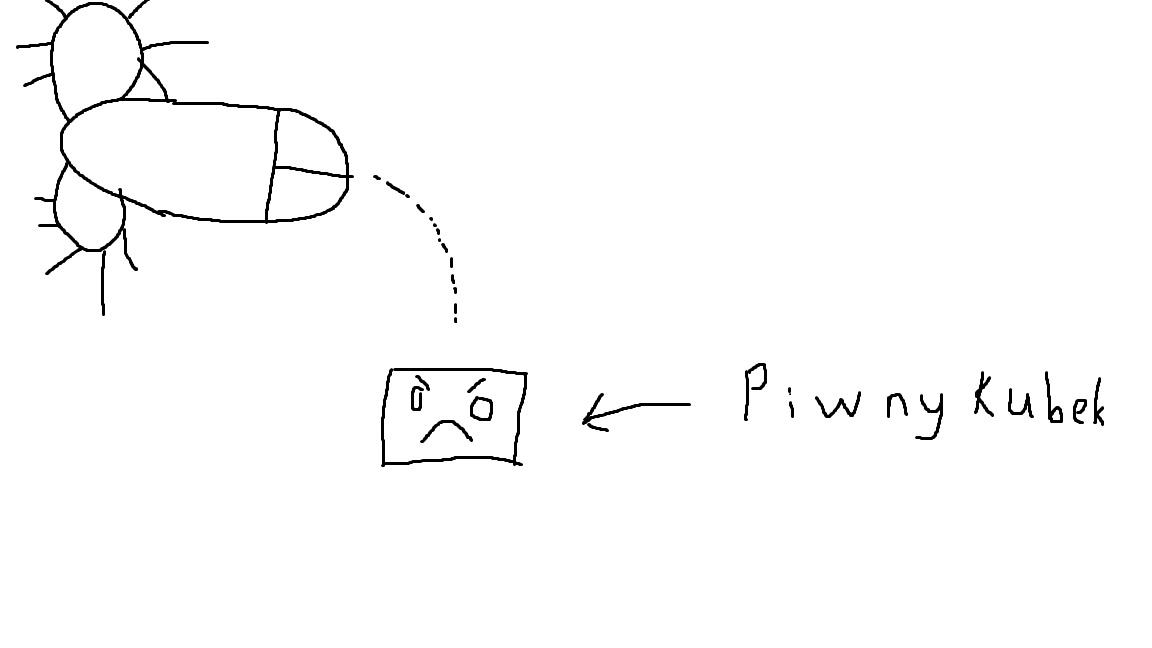 Piwny Kubek